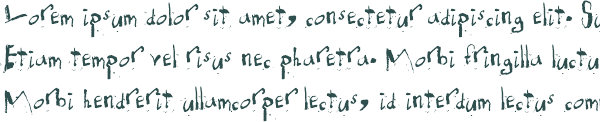 Lorem ipsum dolor sit amet, consectetur adipiscing elit. Su
Etiam tempor vel risus nec pharetra. Morbi fringilla luctu
Morbi hendrerit ullamcorper lectus, id interdum lectus com